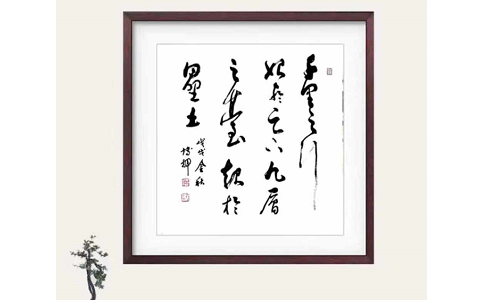 千里之行
始於足下九層
之臺起於
壘土
戊戌金秋